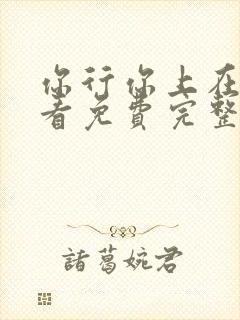 你行你上在
看免費完整
諸葛婉君